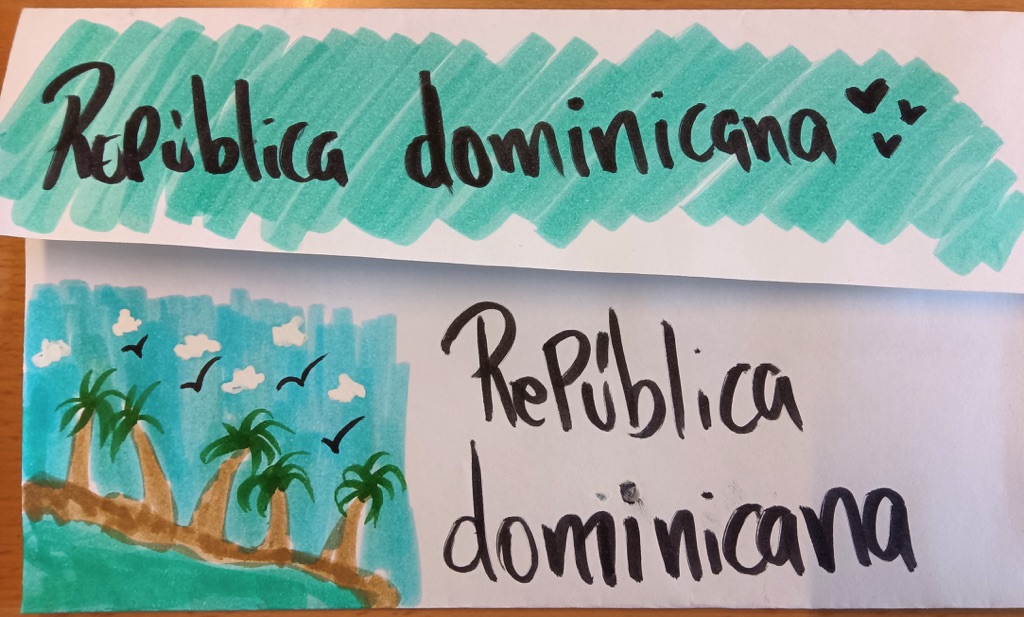 República dominicana
República
dominicana